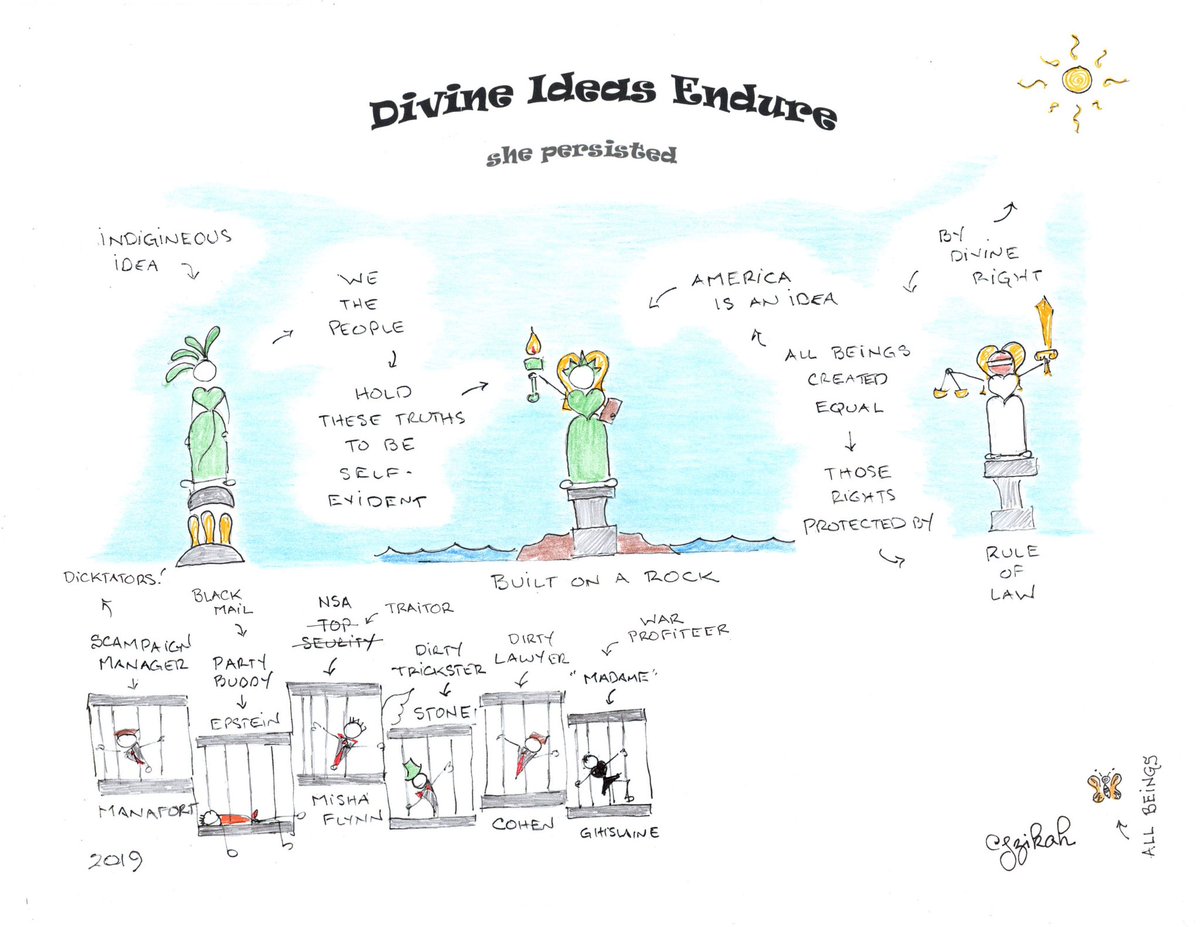 Divine Ideas Endure
she persisted
INDIGINEOUS
IDEA
WE
THE
PEOPLE
HOLD
THESE TRUTHS
TO BE
SELF-
EVIDENT
AMERICA
IS AN IDEA
ALL BEINGS
CREATED
EQUAL
THOSE
RIGHTS
PROTECTED BY
BY
DIVINE
RIGHT
RULE
OF
LAW
BUILT ON A ROCK
DICKTATORS!
SCAMPAIGN
MANAGER
MANAFORT
BLACK
MAIL
PARTY
BUDDY
EPSTEIN
NSA
TOP
SEURITY
TRAITOR
MISHA
FLYNN
DIRTY
TRICKSTER
STONE
DIRTY
LAWYER
COHEN
WAR
PROFITEER
"MADAME"
GHISLAINE
2019
ALL BEINGS